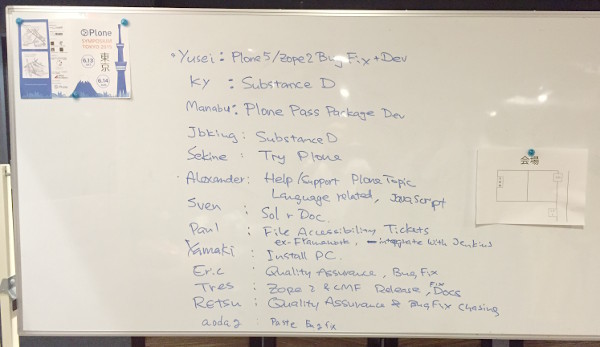 Plone
SYMPOSIUM
TOKYO 2015
東京
6.13
6.14
会場
Yusei : Plone5/Zope2 BugFix + Dev
Ky : Substance D
Manabu : Plone Pass Package Dev
Jbking : Substance D
Sekine : Try Plone
Alexander : Help/Support Plone Topic
Language related, JavaScript
Sven : Sol r Doc.
Paul : File Accessibility Tickets
ex-Framework. integrate with Jenkins
Yamaki : Install PC.
Eric : Quality Assurance, BugFix
Tres : Zope 2 & CMF Release, Fix Docs
Retsu : Quality Assurance & BugFix Chasing
aoda2 :